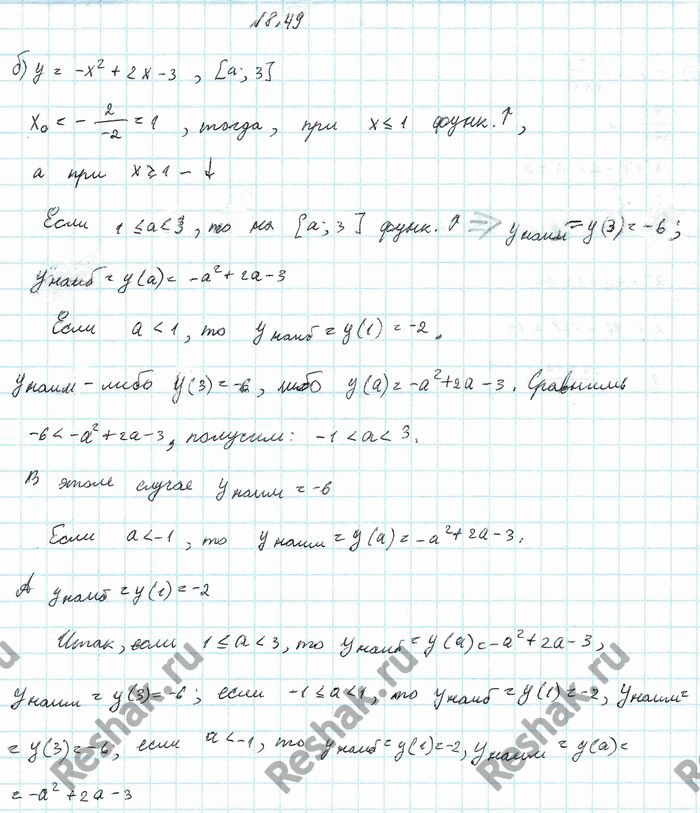 №8.49
б) y = -x² + 2x - 3 , [a; 3]
x₀ = - 2/-2 = 1 , тогда, при x ≤ 1 функ. ↑,
а при x ≥ 1 - ↓
Если 1 ≤ a < 3, то на [a; 3] функ. ↑ ⇒ y наим = y(3) = -6;
y наиб = y(a) = -a² + 2a - 3
Если a < 1, то y наиб = y(1) = -2.
y наим - либо y(3) = -6, либо y(a) = -a² + 2a - 3. Сравним
-6 < -a² + 2a - 3, получим: -1 < a < 3.
В этом случае y наим = -6
Если a < -1, то y наим = y(a) = -a² + 2a - 3.
А y наиб = y(1) = -2
Итак, если 1 ≤ a < 3, то y наиб = y(a) = -a² + 2a - 3,
y наим = y(3) = -6; если -1 ≤ a < 1, то y наиб = y(1) = -2, y наим =
= y(3) = -6, если a < -1, то y наиб = y(1) = -2, y наим = y(a) =
= -a² + 2a - 3
Reshak.ru
Reshak.ru
Reshak.ru